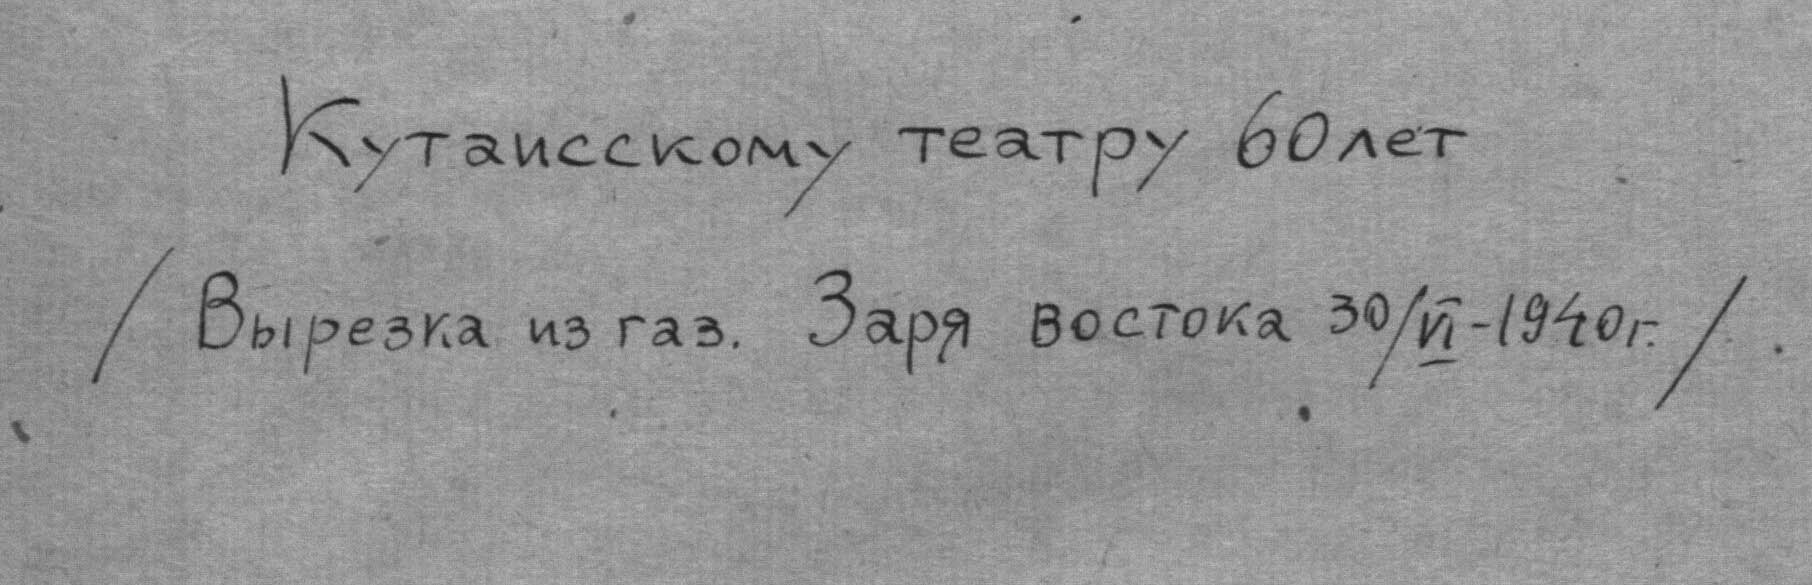 Кутаисскому театру 60 лет
/ Вырезка из газ. Заря востока 30/VI-1940г. /